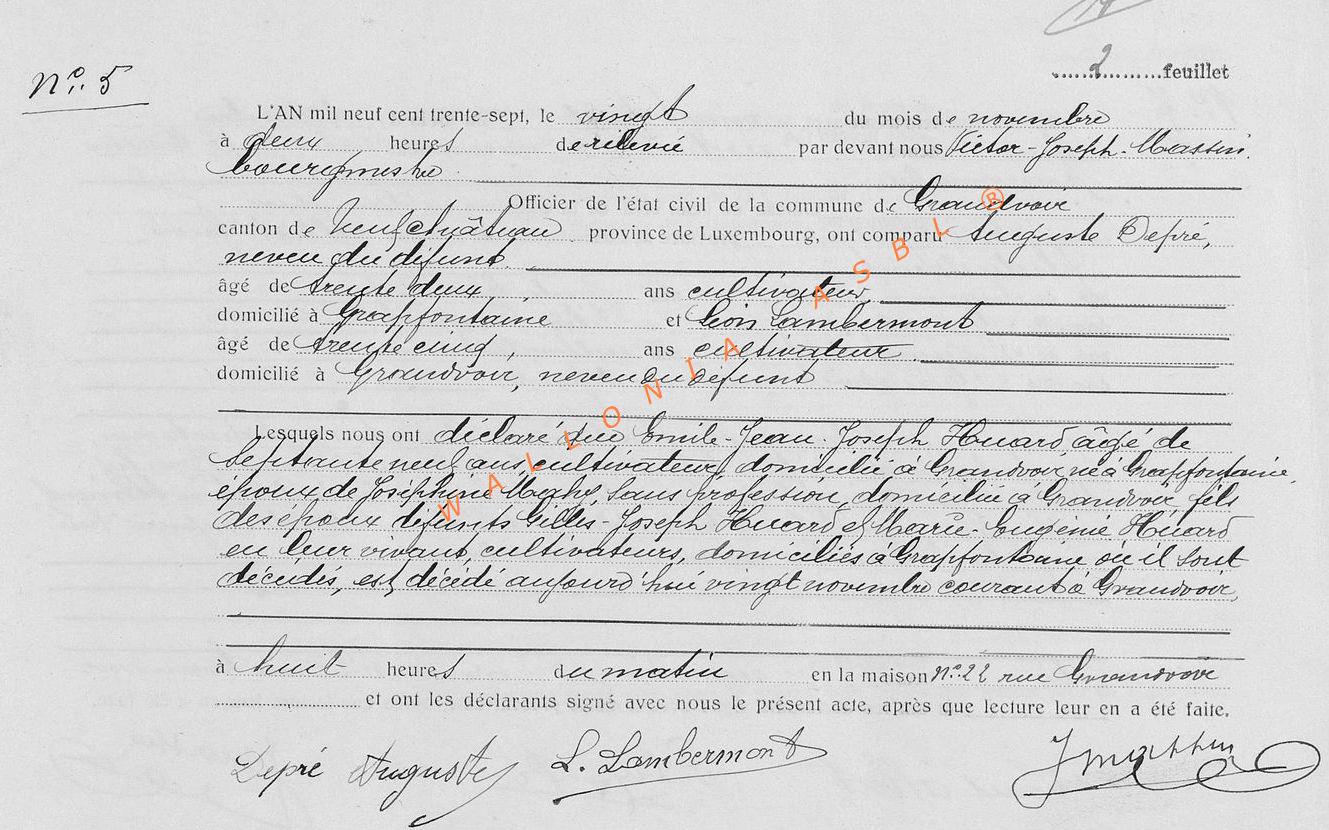 2 feuillet
N° 5
L'AN mil neuf cent trente-sept, le vingt du mois de novembre
à deux heures de relevée par devant nous Victor-Joseph-Massin
bourgmestre
Officier de l'état civil de la commune de Grandvoir
canton de Neufchâteau province de Luxembourg, ont comparu Auguste Depré,
neveu du défunt
âgé de trente deux ans cultivateur
domicilié à Grapfontaine et Léon Lambermont
âgé de trente cinq, ans cultivateur
domicilié à Grandvoir, neveu du défunt
Lesquels nous ont déclaré que Emile-Jean-Joseph Huard, âgé de
septante neuf ans, cultivateur, domicilié à Grandvoir, né à Grapfontaine,
époux de Joséphine sans profession, domiciliée à Grandvoir, fils
des époux défunts Gilles-Joseph Huard et Marie-Eugénie Huard
en leur vivant, cultivateurs, domiciliés à Grapfontaine où il sont
décédés, est décédé aujourd'hui vingt novembre courant à Grandvoir,
à huit heures du matin en la maison N° 22 rue Grandvoir
et ont les déclarants signé avec nous le présent acte, après que lecture leur en a été faite.
Depré Auguste L. Lambermont
WALLONIA ASBL ®